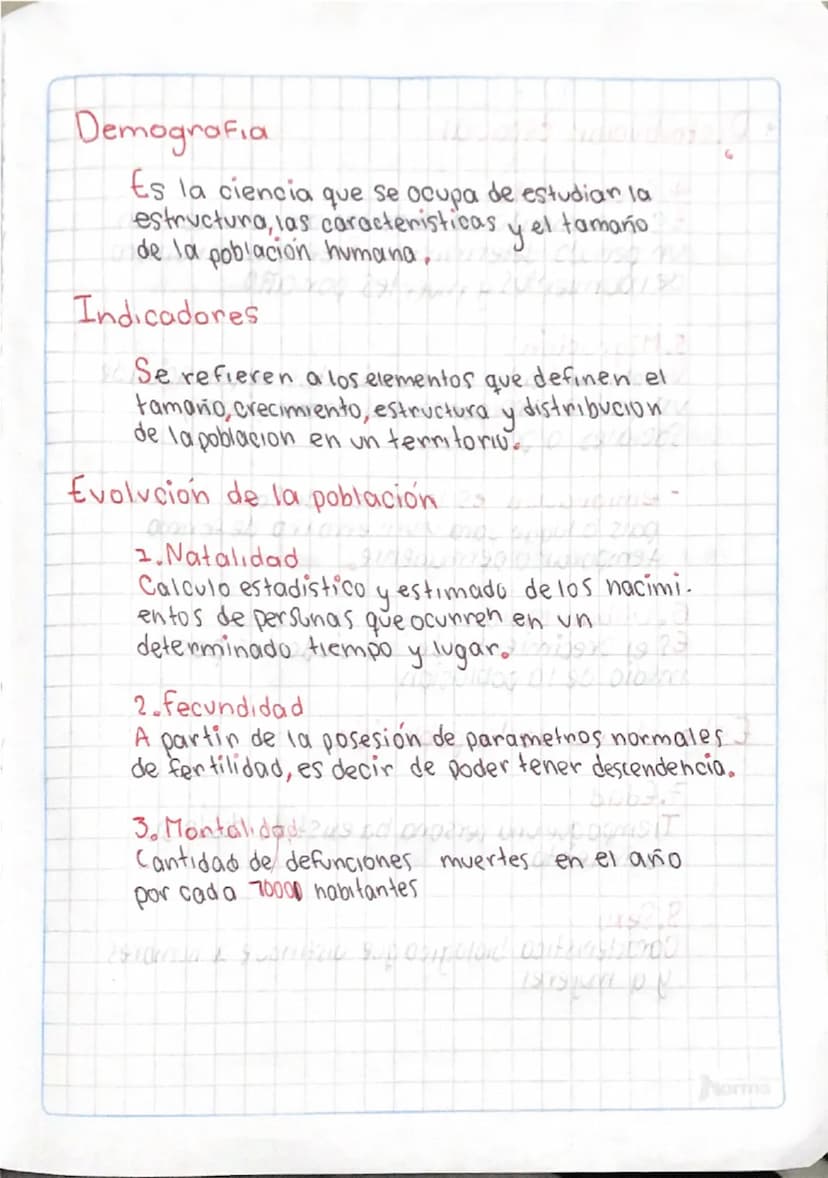 Demografia
Es la ciencia que se ocupa de estudiar la
estructura, las caracteristicas y el tamaño
de la población humana.
Indicadores
Se refieren a los elementos que definen el
tamaño, crecimiento, estructura y distribucion
de la poblacion en un territorio.
Evolución de la población
1. Natalidad
Calculo estadistico y estimado de los nacimi-
entos de personas que ocurren en un
determinado tiempo y lugar.
2. Fecundidad
A partir de la posesión de parametros normales
de fertilidad, es decir de poder tener descendencia.
3. Mortalidad
Cantidad de defunciones muertes en el año
por cada 10000 habitantes
Norma